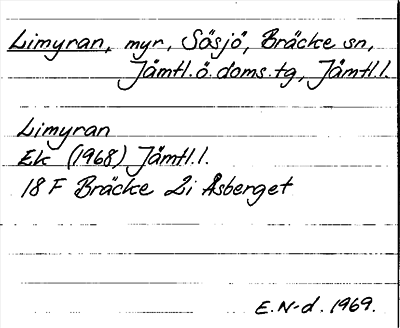 Limyran, myr, Sösjö, Bräcke sn,
Jämtl.ö. doms.tg, Jämtl.l.
Limyran
Ek (1968) Jämtl.l.
18 F Bräcke 2i Åsberget
E.N-d. 1969.